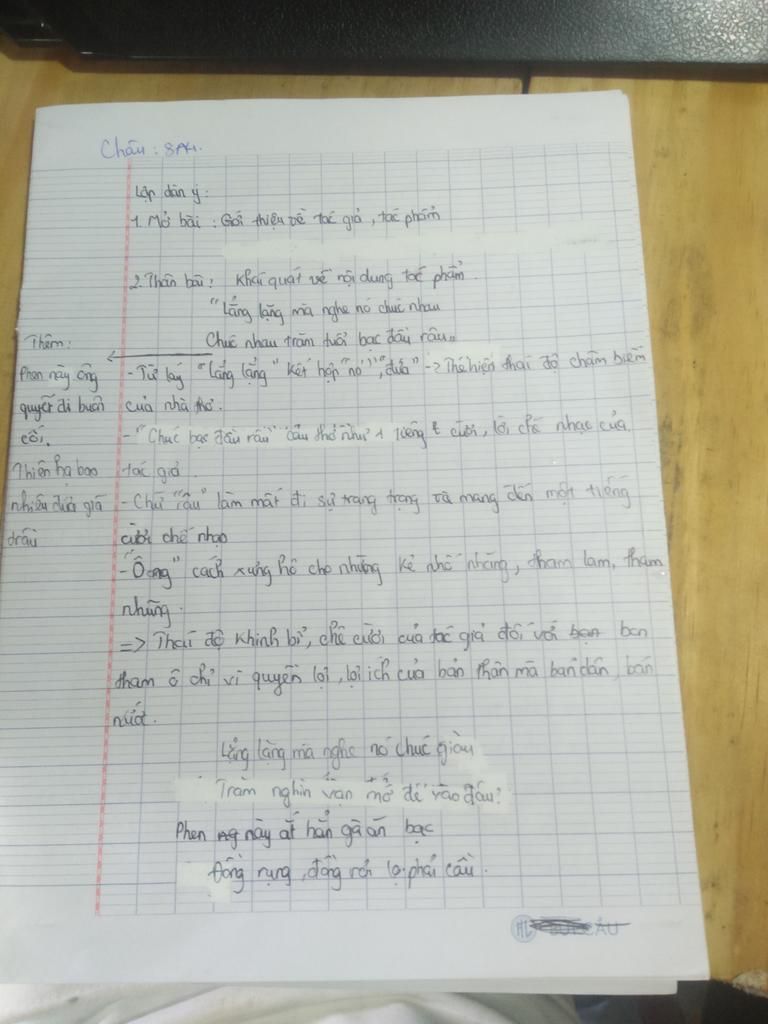 Châu : 8A4.
Lập dàn ý :
1. Mở bài : Giới thiệu về tác giả , tác phẩm
2. Thân bài : Khái quát về nội dung tác phẩm.
"Lẳng lặng mà nghe nó chúc nhau
Chúc nhau trăm tuổi bạc đầu râu"
Thêm:
Phen này ông
quyết đi buôn
cối,
Thiên hạ bao
nhiêu đứa giã
trầu
- Từ láy "lẳng lặng" kết hợp "nó", "đứa" -> Thể hiện thái độ châm biếm
của nhà thơ.
- "Chúc bạc đầu râu" câu thơ như 1 tiếng cười, lời chế nhạo của
tác giả.
- Chữ "râu" làm mất đi sự trang trọng và mang đến một tiếng
cười chế nhạo
- "Ông" cách xưng hô cho những kẻ nhố nhăng, tham lam, tham
nhũng.
=> Thái độ khinh bỉ, chê cười của tác giả đối với bọn
tham ô chỉ vì quyền lợi, lợi ích của bản thân mà bán dân, bán
nước.
Lẳng lặng mà nghe nó chúc giàu
Trăm nghìn vạn mớ để vào đâu?
Phen này ắt hẳn gà ăn bạc
Đồng rụng, đồng rơi lọ phải cầu.